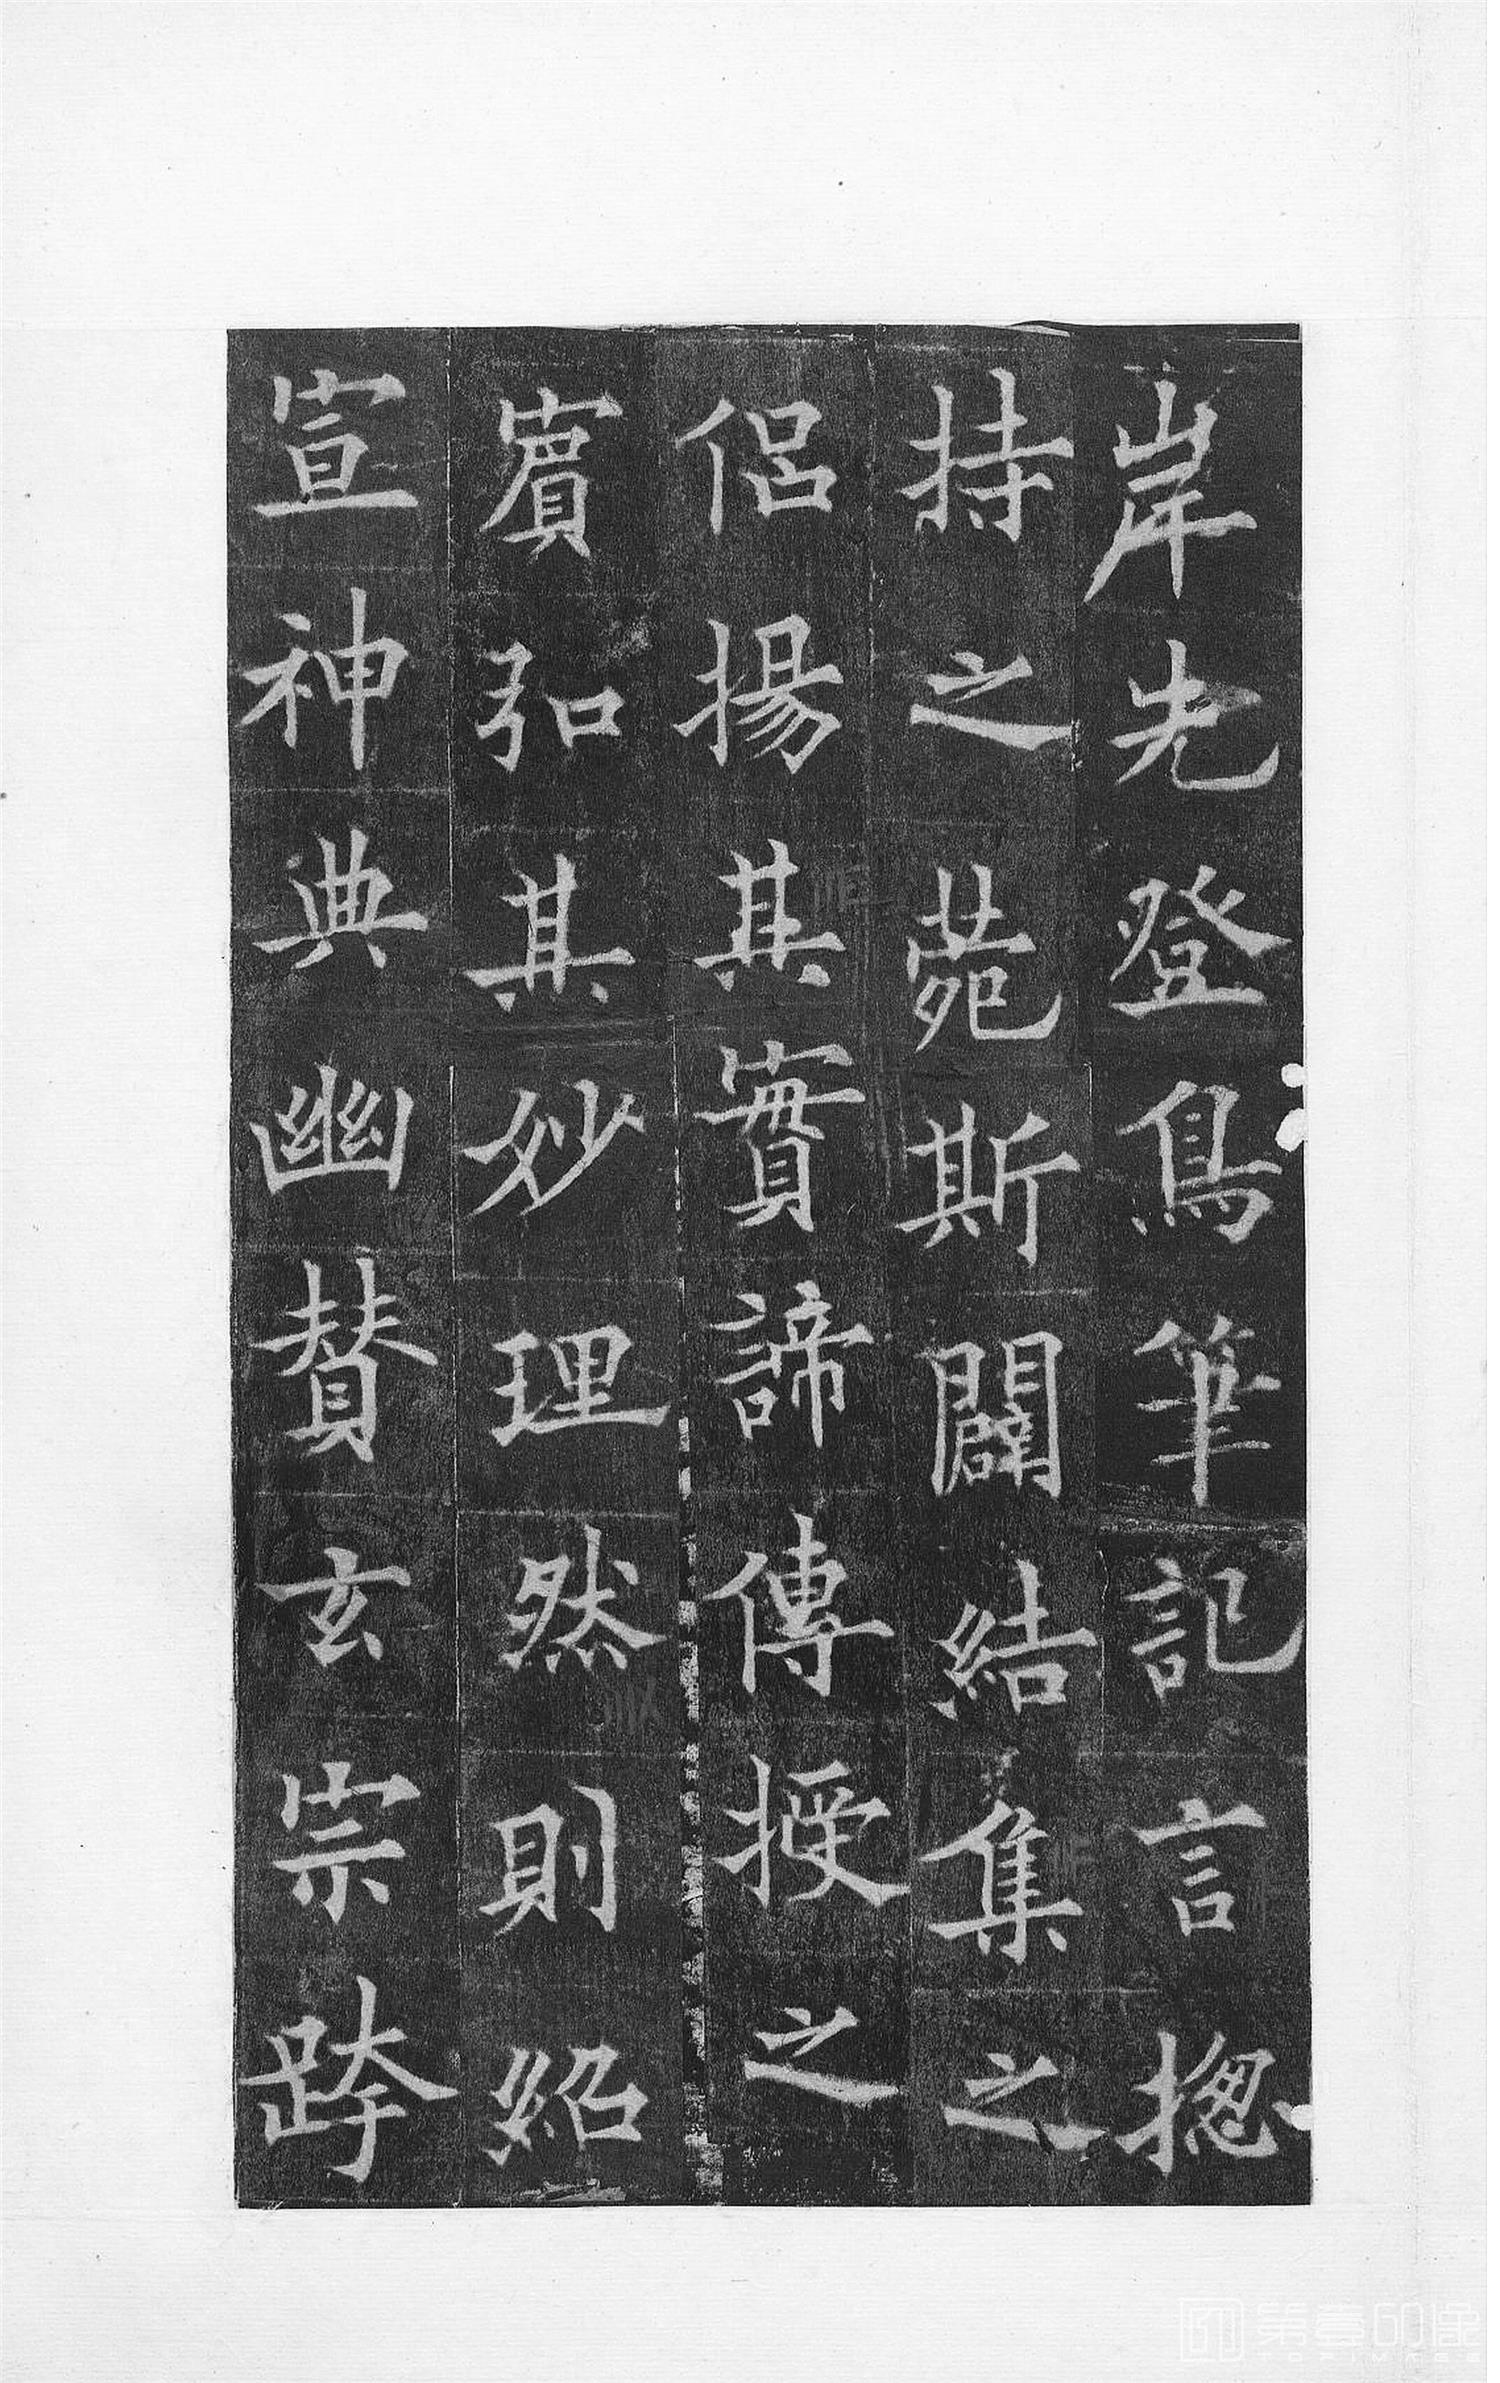 岸先登鳥筆記言揔
持之菀斯闢結集之
侶揚其實諦傳授之
賔弘其妙理然則紹
宣神典幽賛玄宗跨
第壹印像
TOPIMAGE